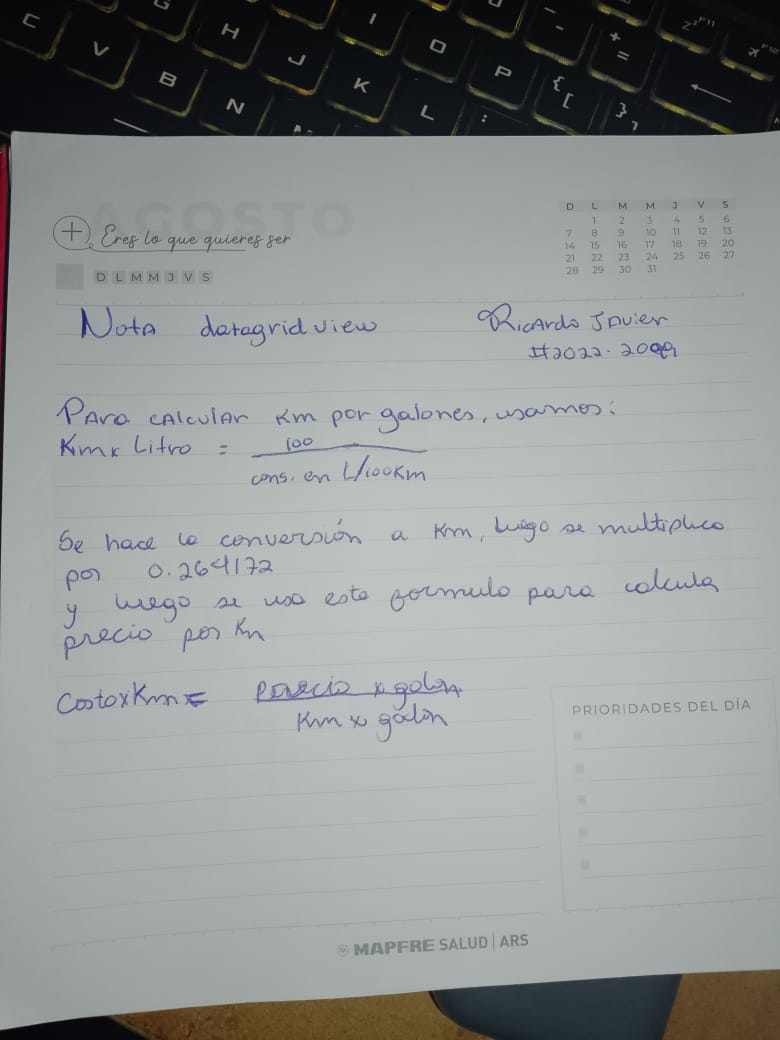 C V G B H N J I K O L P : { [ - + = } ] ZzzF11 F12
AGOSTO
+ Eres lo que quieres ser
D L M M J V S
D L M M J V S
1 2 3 4 5 6
7 8 9 10 11 12 13
14 15 16 17 18 19 20
21 22 23 24 25 26 27
28 29 30 31
Nota datagridview
Ricardo Javier
#2022-2099
Para calcular Km por galones, usamos:
Kmx Litro = 100
cons. en L/100Km
Se hace la conversión a Km, luego se multiplica
por 0.264172
y luego se usa esta formula para calcula
precio por Km
CostoxKm = Precio x galon
Km x galón
PRIORIDADES DEL DÍA
MAPFRE SALUD | ARS